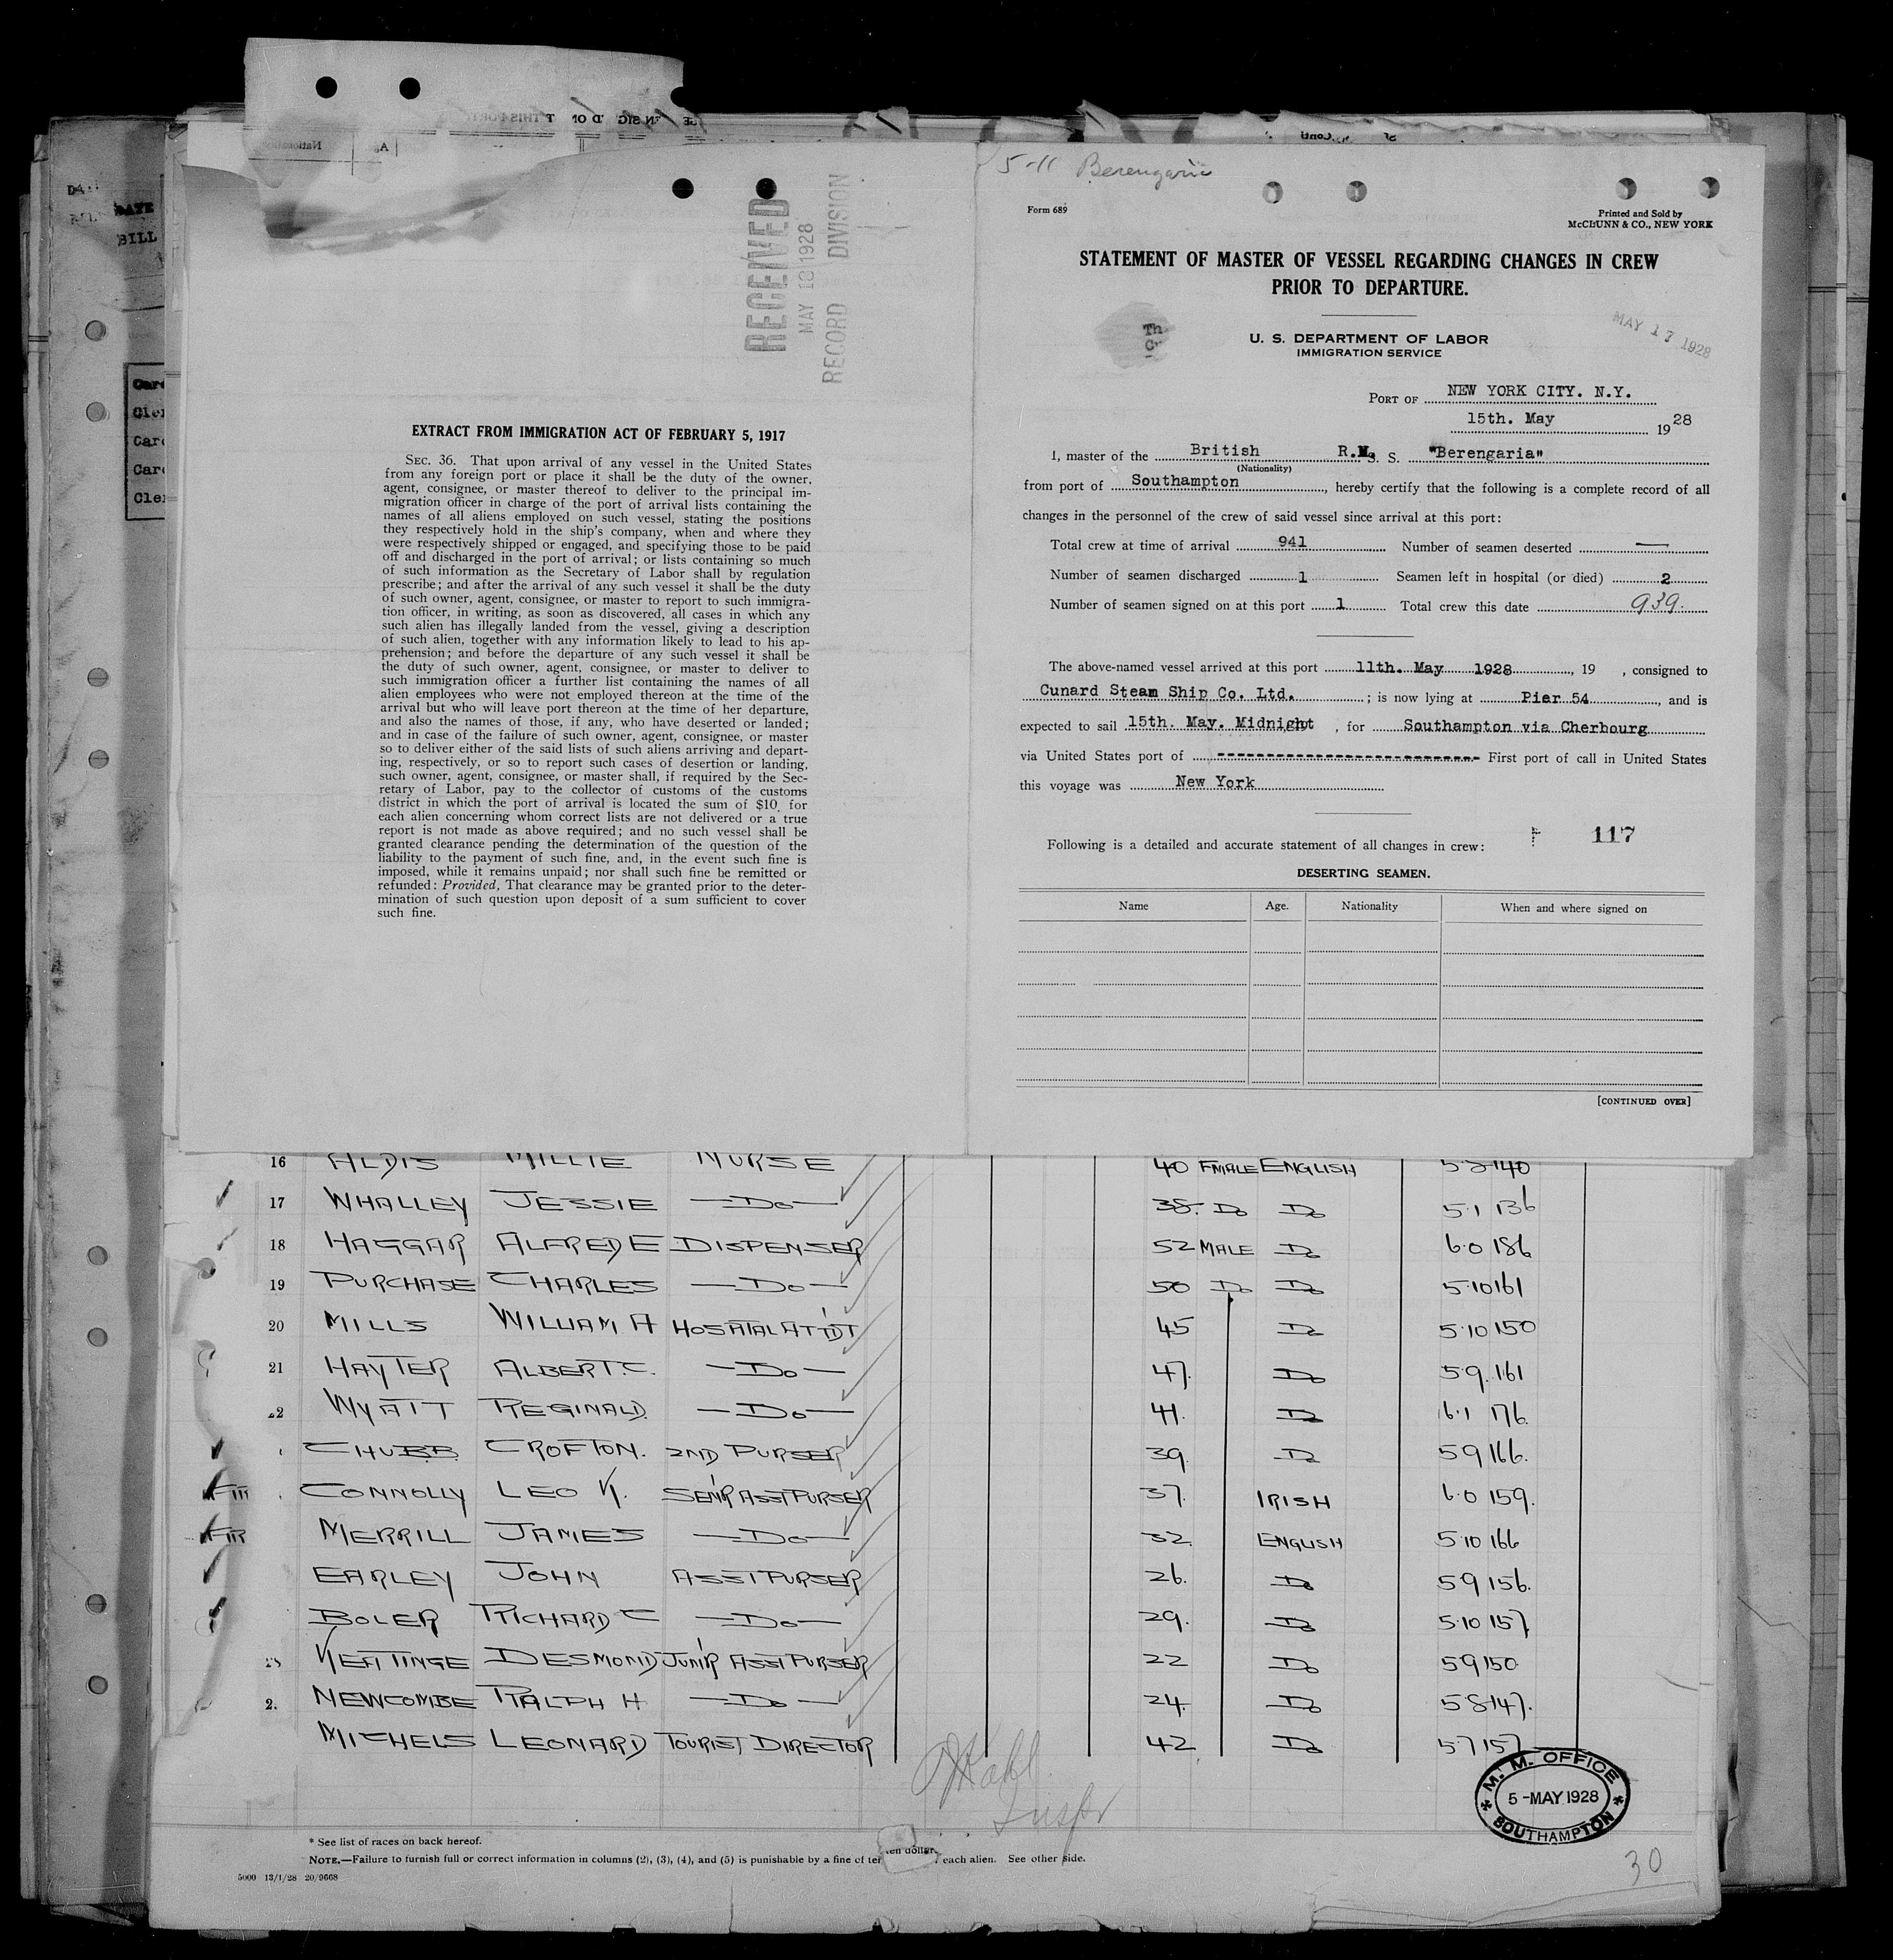 5-11 Berengaria
Form 689
Printed and Sold by
McCLUNN & CO., NEW YORK
STATEMENT OF MASTER OF VESSEL REGARDING CHANGES IN CREW
PRIOR TO DEPARTURE.
U. S. DEPARTMENT OF LABOR
IMMIGRATION SERVICE
MAY 17 1928
PORT OF NEW YORK CITY. N.Y.
15th. May 1928
I, master of the British R.M.S. S. "Berengaria"
(Nationality)
from port of Southampton, hereby certify that the following is a complete record of all
changes in the personnel of the crew of said vessel since arrival at this port:
Total crew at time of arrival 941 Number of seamen deserted —
Number of seamen discharged 1 Seamen left in hospital (or died) 2
Number of seamen signed on at this port 1 Total crew this date 939.
The above-named vessel arrived at this port 11th. May 1928, 19 , consigned to
Cunard Steam Ship Co. Ltd. ; is now lying at Pier 54, and is
expected to sail 15th. May. Midnight , for Southampton via Cherbourg
via United States port of ---------------------------- First port of call in United States
this voyage was New York
Following is a detailed and accurate statement of all changes in crew: 117
DESERTING SEAMEN.
Name Age. Nationality When and where signed on
[CONTINUED OVER]
RECEIVED
MAY 18 1928
RECORD DIVISION
EXTRACT FROM IMMIGRATION ACT OF FEBRUARY 5, 1917
SEC. 36. That upon arrival of any vessel in the United States
from any foreign port or place it shall be the duty of the owner,
agent, consignee, or master thereof to deliver to the principal im-
migration officer in charge of the port of arrival lists containing the
names of all aliens employed on such vessel, stating the positions
they respectively hold in the ship's company, when and where they
were respectively shipped or engaged, and specifying those to be paid
off and discharged in the port of arrival; or lists containing so much
of such information as the Secretary of Labor shall by regulation
prescribe; and after the arrival of any such vessel it shall be the duty
of such owner, agent, consignee, or master to report to such immigra-
tion officer, in writing, as soon as discovered, all cases in which any
such alien has illegally landed from the vessel, giving a description
of such alien, together with any information likely to lead to his ap-
prehension; and before the departure of any such vessel it shall be
the duty of such owner, agent, consignee, or master to deliver to
such immigration officer a further list containing the names of all
alien employees who were not employed thereon at the time of the
arrival but who will leave port thereon at the time of her departure,
and also the names of those, if any, who have deserted or landed;
and in case of the failure of such owner, agent, consignee, or master
so to deliver either of the said lists of such aliens arriving and depart-
ing, respectively, or so to report such cases of desertion or landing,
such owner, agent, consignee, or master shall, if required by the Sec-
retary of Labor, pay to the collector of customs of the customs
district in which the port of arrival is located the sum of $10 for
each alien concerning whom correct lists are not delivered or a true
report is not made as above required; and no such vessel shall be
granted clearance pending the determination of the question of the
liability to the payment of such fine, and, in the event such fine is
imposed, while it remains unpaid; nor shall such fine be remitted or
refunded: Provided, That clearance may be granted prior to the deter-
mination of such question upon deposit of a sum sufficient to cover
such fine.
DATE
BILL
16 ALDIS MILLIE NURSE 40 FMALE ENGLISH 5·8 140
17 WHALLEY JESSIE —Do— 38. Do Do 5·1 136
18 HAGGAR ALFRED E DISPENSER 52 MALE Do 6·0 186
19 PURCHASE CHARLES —Do— 50 Do Do 5·10 161
20 MILLS WILLIAM A HOSPITAL ATTDT 45 Do 5·10 150
21 HAYTER ALBERT.C. —Do— 47. Do 5·9. 161
22 WYATT REGINALD. —Do— 41. Do 6·1 176.
CHUBB CROFTON. 2ND PURSER 39. Do 5 9 166.
CONNOLLY LEO K. SEN'R ASST PURSER 37. IRISH 6·0 159.
MERRILL JAMES —Do— 32. ENGLISH 5·10 166
EARLEY JOHN ASST PURSER 26. Do 5 9 156.
BOLER RICHARD C —Do— 29. Do 5·10 157
KEATINGE DESMOND JUN'R ASST PURSER 22 Do 5 9 150
2. NEWCOMBE RALPH H —Do— 24. Do 5·8 147.
MICHELS LEONARD TOURIST DIRECTOR 42 Do 5·7 157
Inspr
M. M. OFFICE
5-MAY 1928
SOUTHAMPTON
* See list of races on back hereof.
NOTE.—Failure to furnish full or correct information in columns (2), (3), (4), and (5) is punishable by a fine of ten dollars each alien. See other side.
5000 13/1/28 20/9668
30